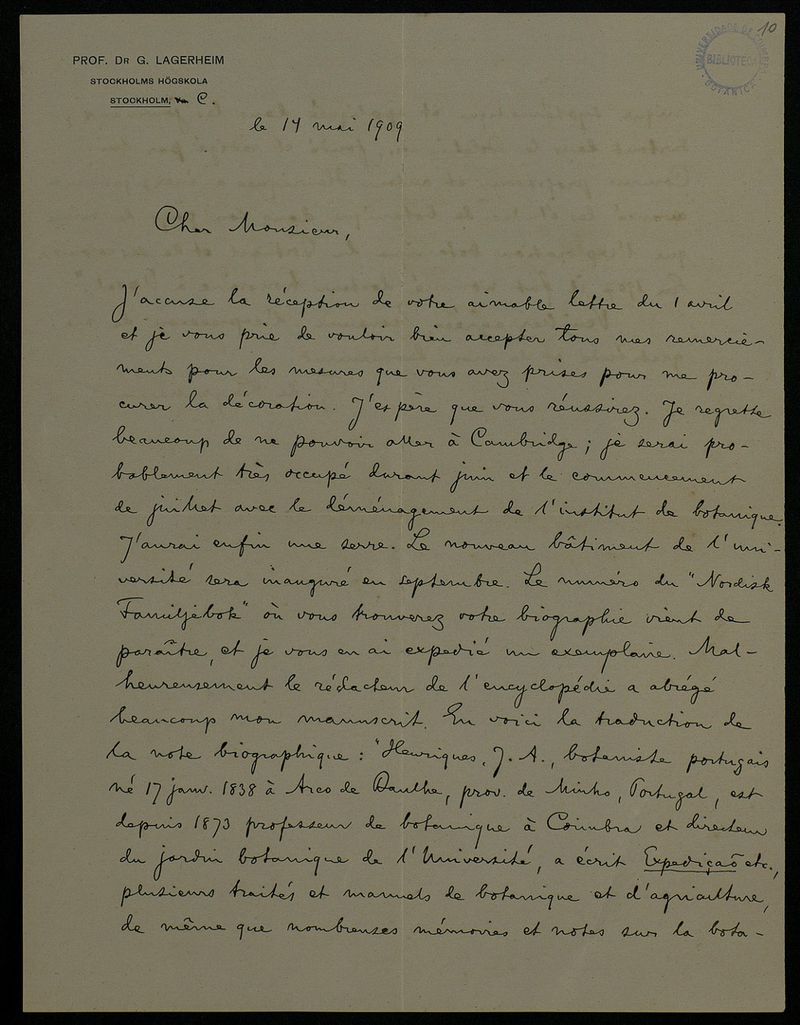 10
UNIVERSIDADE DE COIMBRA
BIBLIOTECA
BOTANICA
PROF. DR G. LAGERHEIM
STOCKHOLMS HÖGSKOLA
STOCKHOLM, C.
le 14 mai 1909
Cher Monsieur,
J'accuse la réception de votre aimable lettre du 1 avril
et je vous prie de vouloir bien accepter tous mes remercie-
ments pour les mesures que vous avez prises pour me pro-
curer la décoration. J'espère que vous réussirez. Je regrette
beaucoup de ne pouvoir aller à Cambridge; je serai pro-
bablement très occupé durant juin et le commencement
de juillet avec le déménagement de l'institut de botanique.
J'aurai enfin une serre. Le nouveau bâtiment de l'uni-
versité sera inauguré en septembre. Le numéro du "Nordisk
Familjebok" où vous trouverez votre biographie vient de
paraître, et je vous en ai expedié un exemplaire. Mal-
heureusement le rédacteur de l'encyclopédie a abrégé
beaucoup mon manuscrit. En voici la traduction de
la note biographique: "Henriques, J. A., botaniste portugais
né 17 janv. 1838 à Arco de Baulhe, prov. de Minho, Portugal, est
depuis 1873 professeur de botanique à Coimbra et directeur
du jardin botanique de l'Université, a écrit Expediçaõ etc.,
plusieurs traités et manuels de botanique et d'agriculture,
de même que nombreuses mémoires et notes sur la bota-